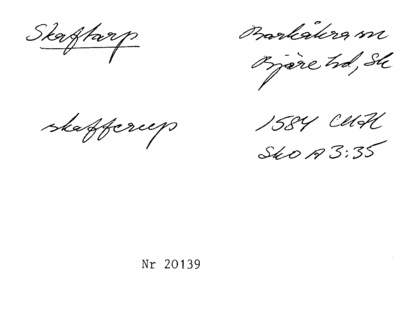 Skaftarp
Barkåkra sn
Bjäre hd, Sk
skafferup
1584 CMH
Sko A 3:35
Nr 20139